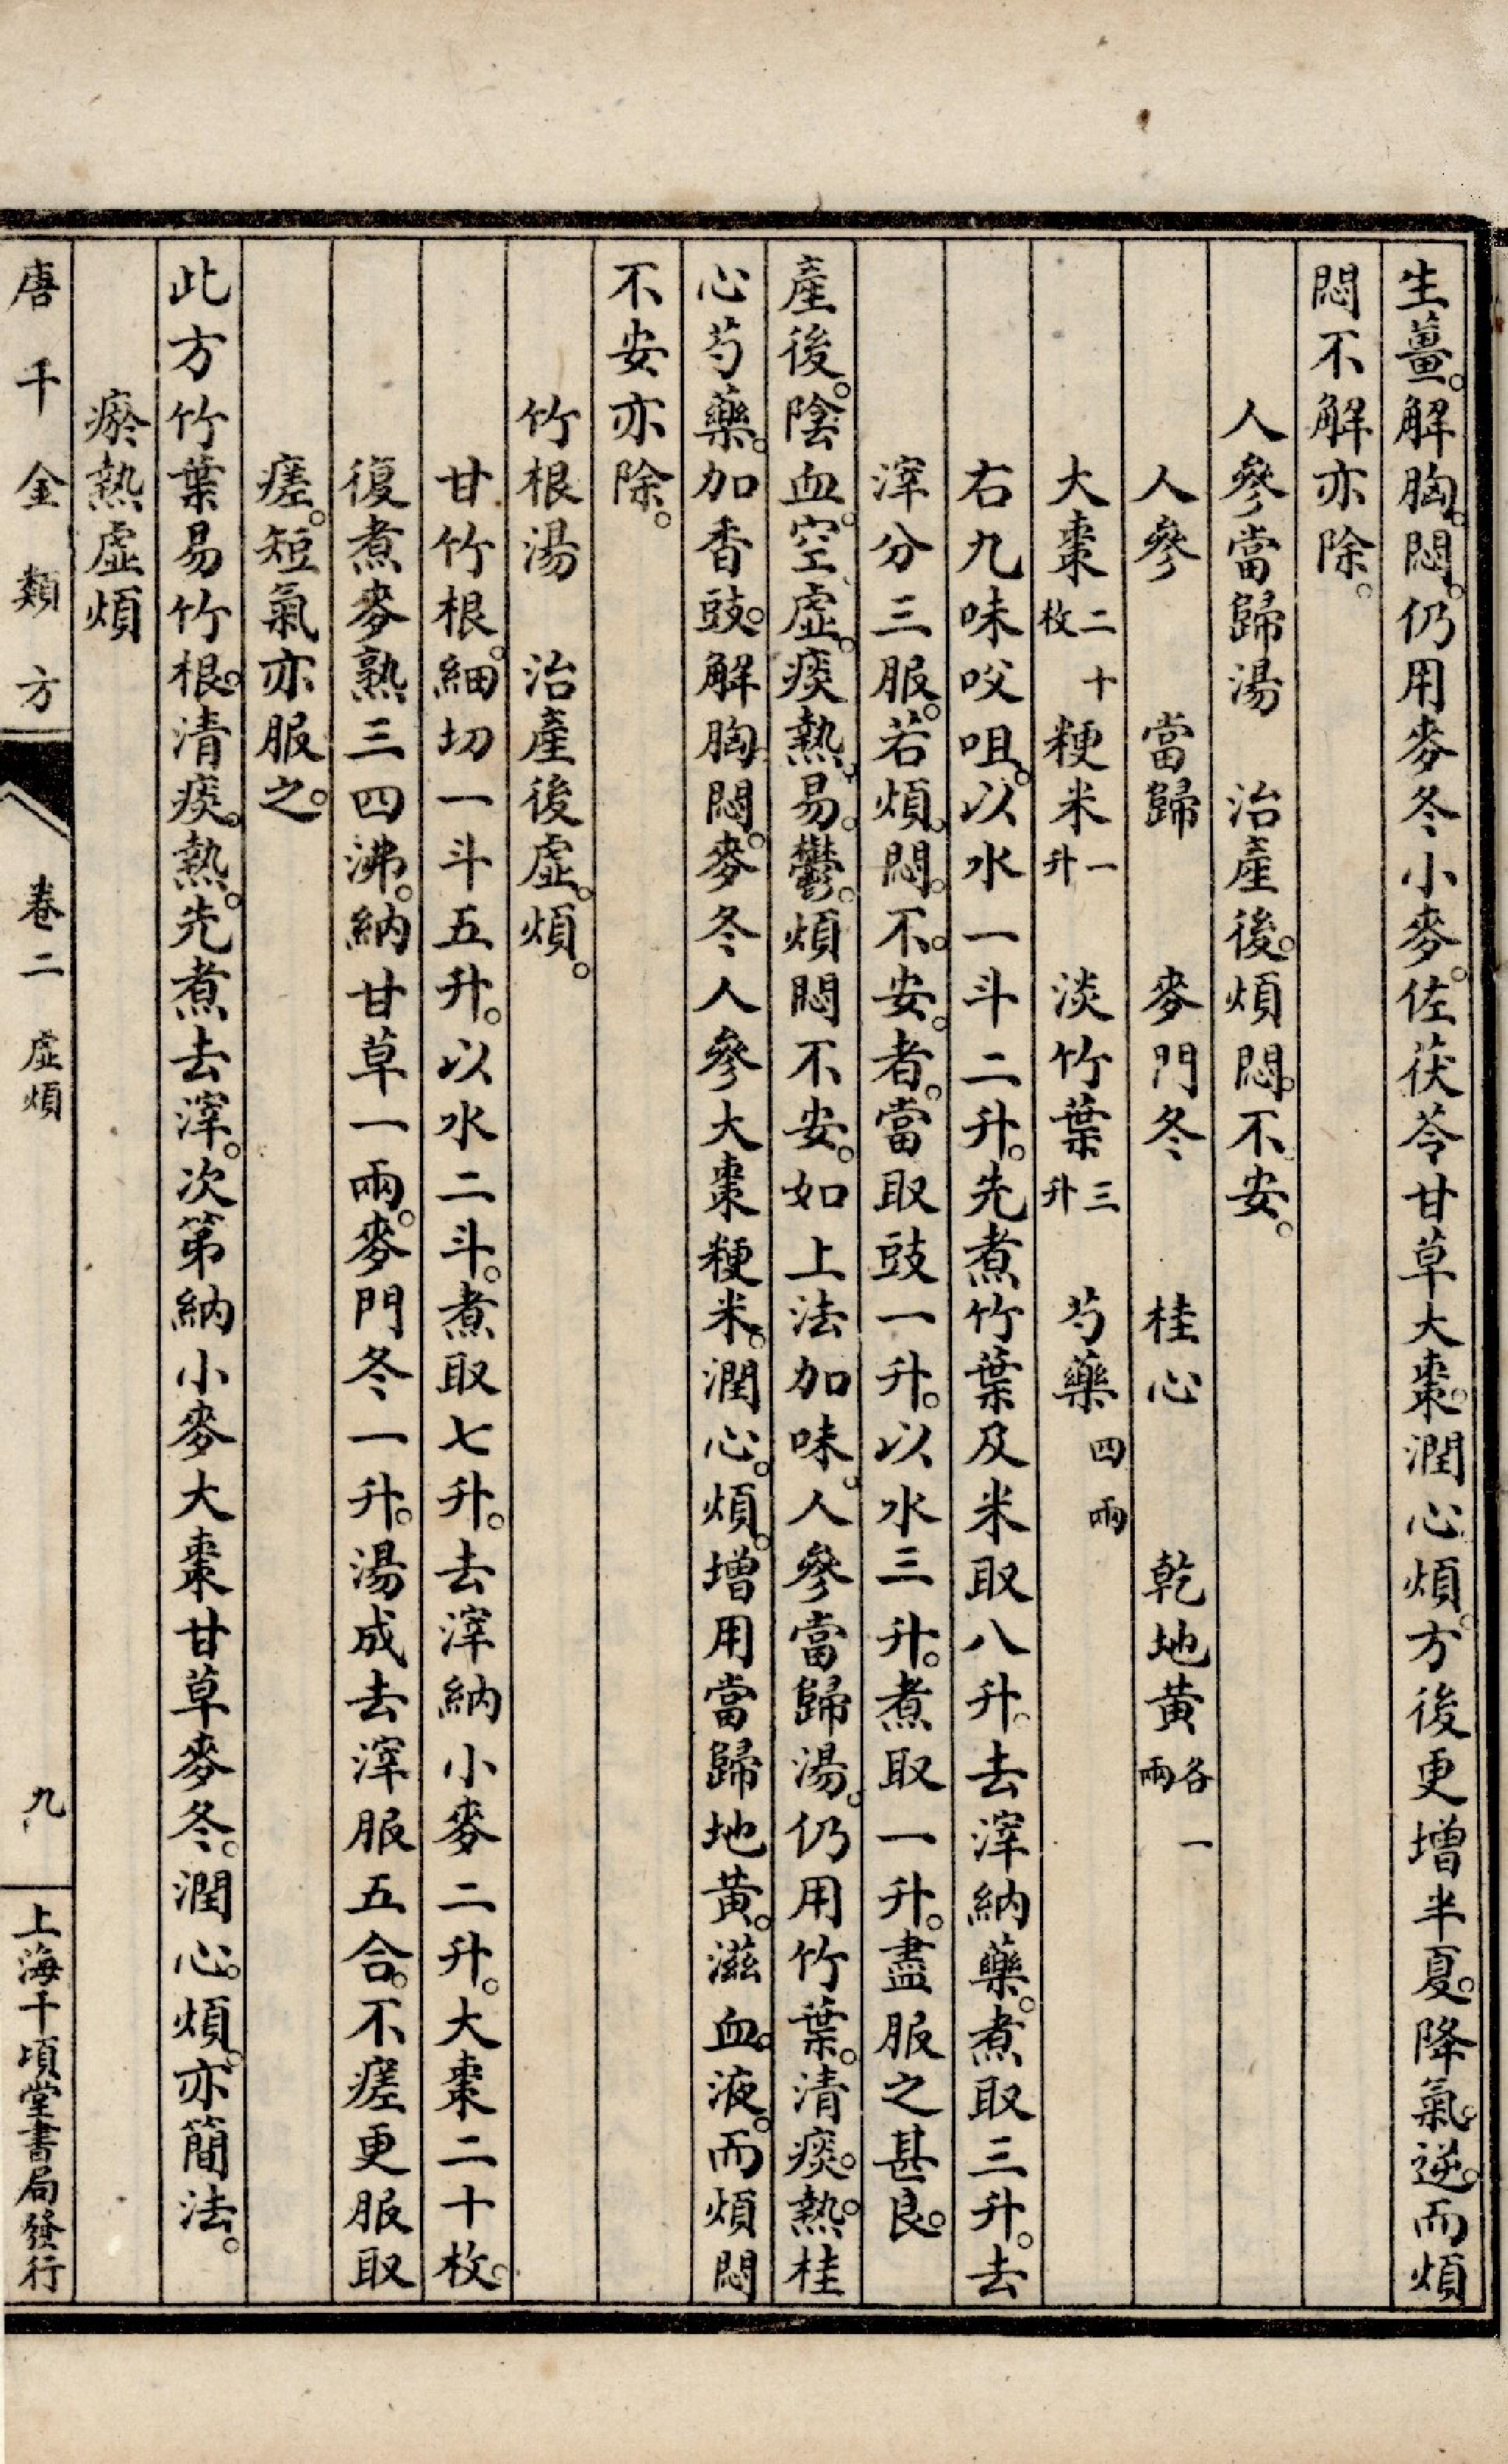 生薑。解胸。悶。仍用麥冬小麥。佐茯苓甘草大棗。潤心煩。方後更增半夏。降氣。逆。而煩
悶不解亦除。
人參當歸湯　治產後。煩悶。不安。
人參　當歸　麥門冬　桂心　乾地黃各一兩
大棗二十枚　粳米一升　淡竹葉三升　芍藥四兩
右九味㕮咀。以水一斗二升。先煮竹葉及米取八升。去滓納藥。煮取三升。去
滓分三服。若煩。悶。不。安。者。當取豉一升。以水三升。煮取一升。盡服之甚良。
產後。陰血。空虛。痰熱。易。鬱。煩悶不安。如上法加味。人參當歸湯。仍用竹葉。清痰。熱。桂
心芍藥。加香豉。解胸悶。麥冬人參大棗粳米。潤心。煩。增用當歸地黃。滋血。液。而煩悶
不安亦除。
竹根湯　治產後虛。煩。
甘竹根。細切一斗五升。以水二斗。煮取七升。去滓納小麥二升。大棗二十枚。
復煮麥熟三四沸。納甘草一兩。麥門冬一升。湯成去滓服五合。不瘥更服取
瘥。短氣亦服之。
此方竹葉易竹根。清痰。熱。先煮去滓。次第納小麥大棗甘草麥冬。潤心。煩。亦簡法。
瘀熱虛煩
唐千金類方　卷二　虛煩　九　上海千頃堂書局發行